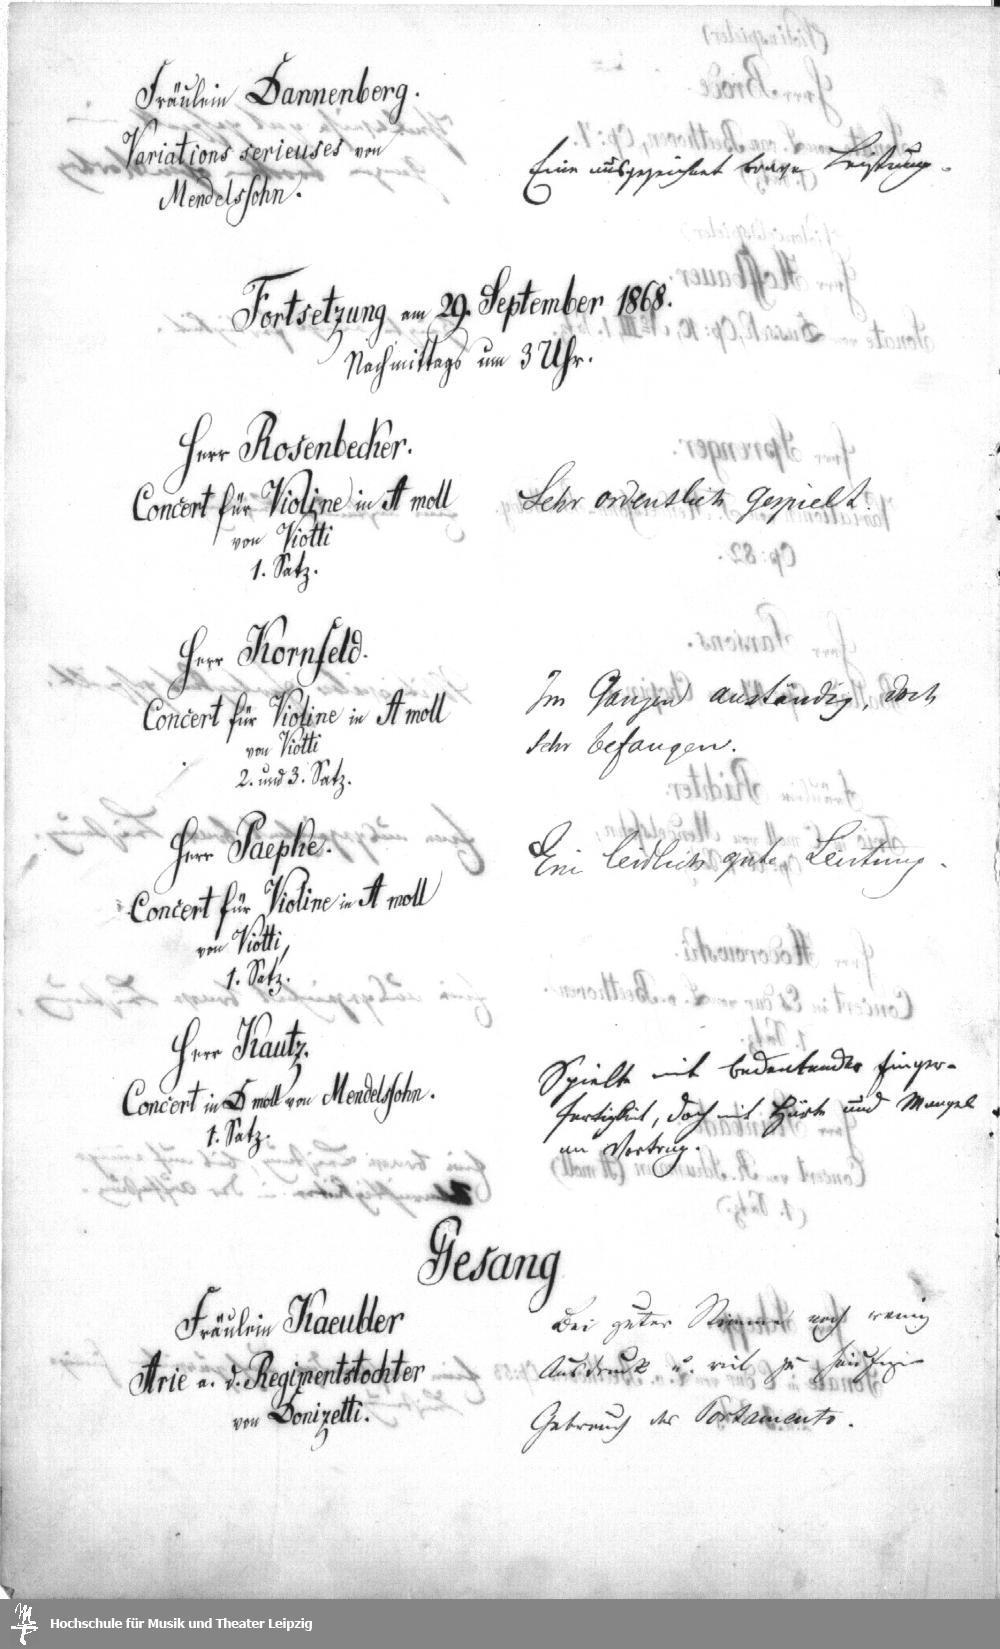 Fräulein Dannenberg.
Variations serieuses von
Mendelssohn.
Eine ausgezeichnet brave Leistung.
Fortsetzung am 29. September 1868.
Nachmittags um 3 Uhr.
Herr Rosenbecker.
Concert für Violine in A moll
von Viotti
1. Satz.
Sehr ordentlich gespielt.
Herr Kornfeld.
Concert für Violine in A moll
von Viotti
2. und 3. Satz.
Im Ganzen anständig, doch
sehr befangen.
Herr Paephe.
Concert für Violine in A moll
von Viotti,
1. Satz.
Eine leidlich gute Leistung.
Herr Kautz.
Concert in D moll von Mendelssohn.
1. Satz.
Spielte mit bedeutender Finger-
fertigkeit, doch mit Härte und Mangel
an Vortrag.
Gesang
Fräulein Kaeubler
Arie a. d. Regimentstochter
von Donizetti.
Bei guter Stimme noch wenig
Ausdruck u. viel zu häufiger
Gebrauch des Portamento.
Hochschule für Musik und Theater Leipzig